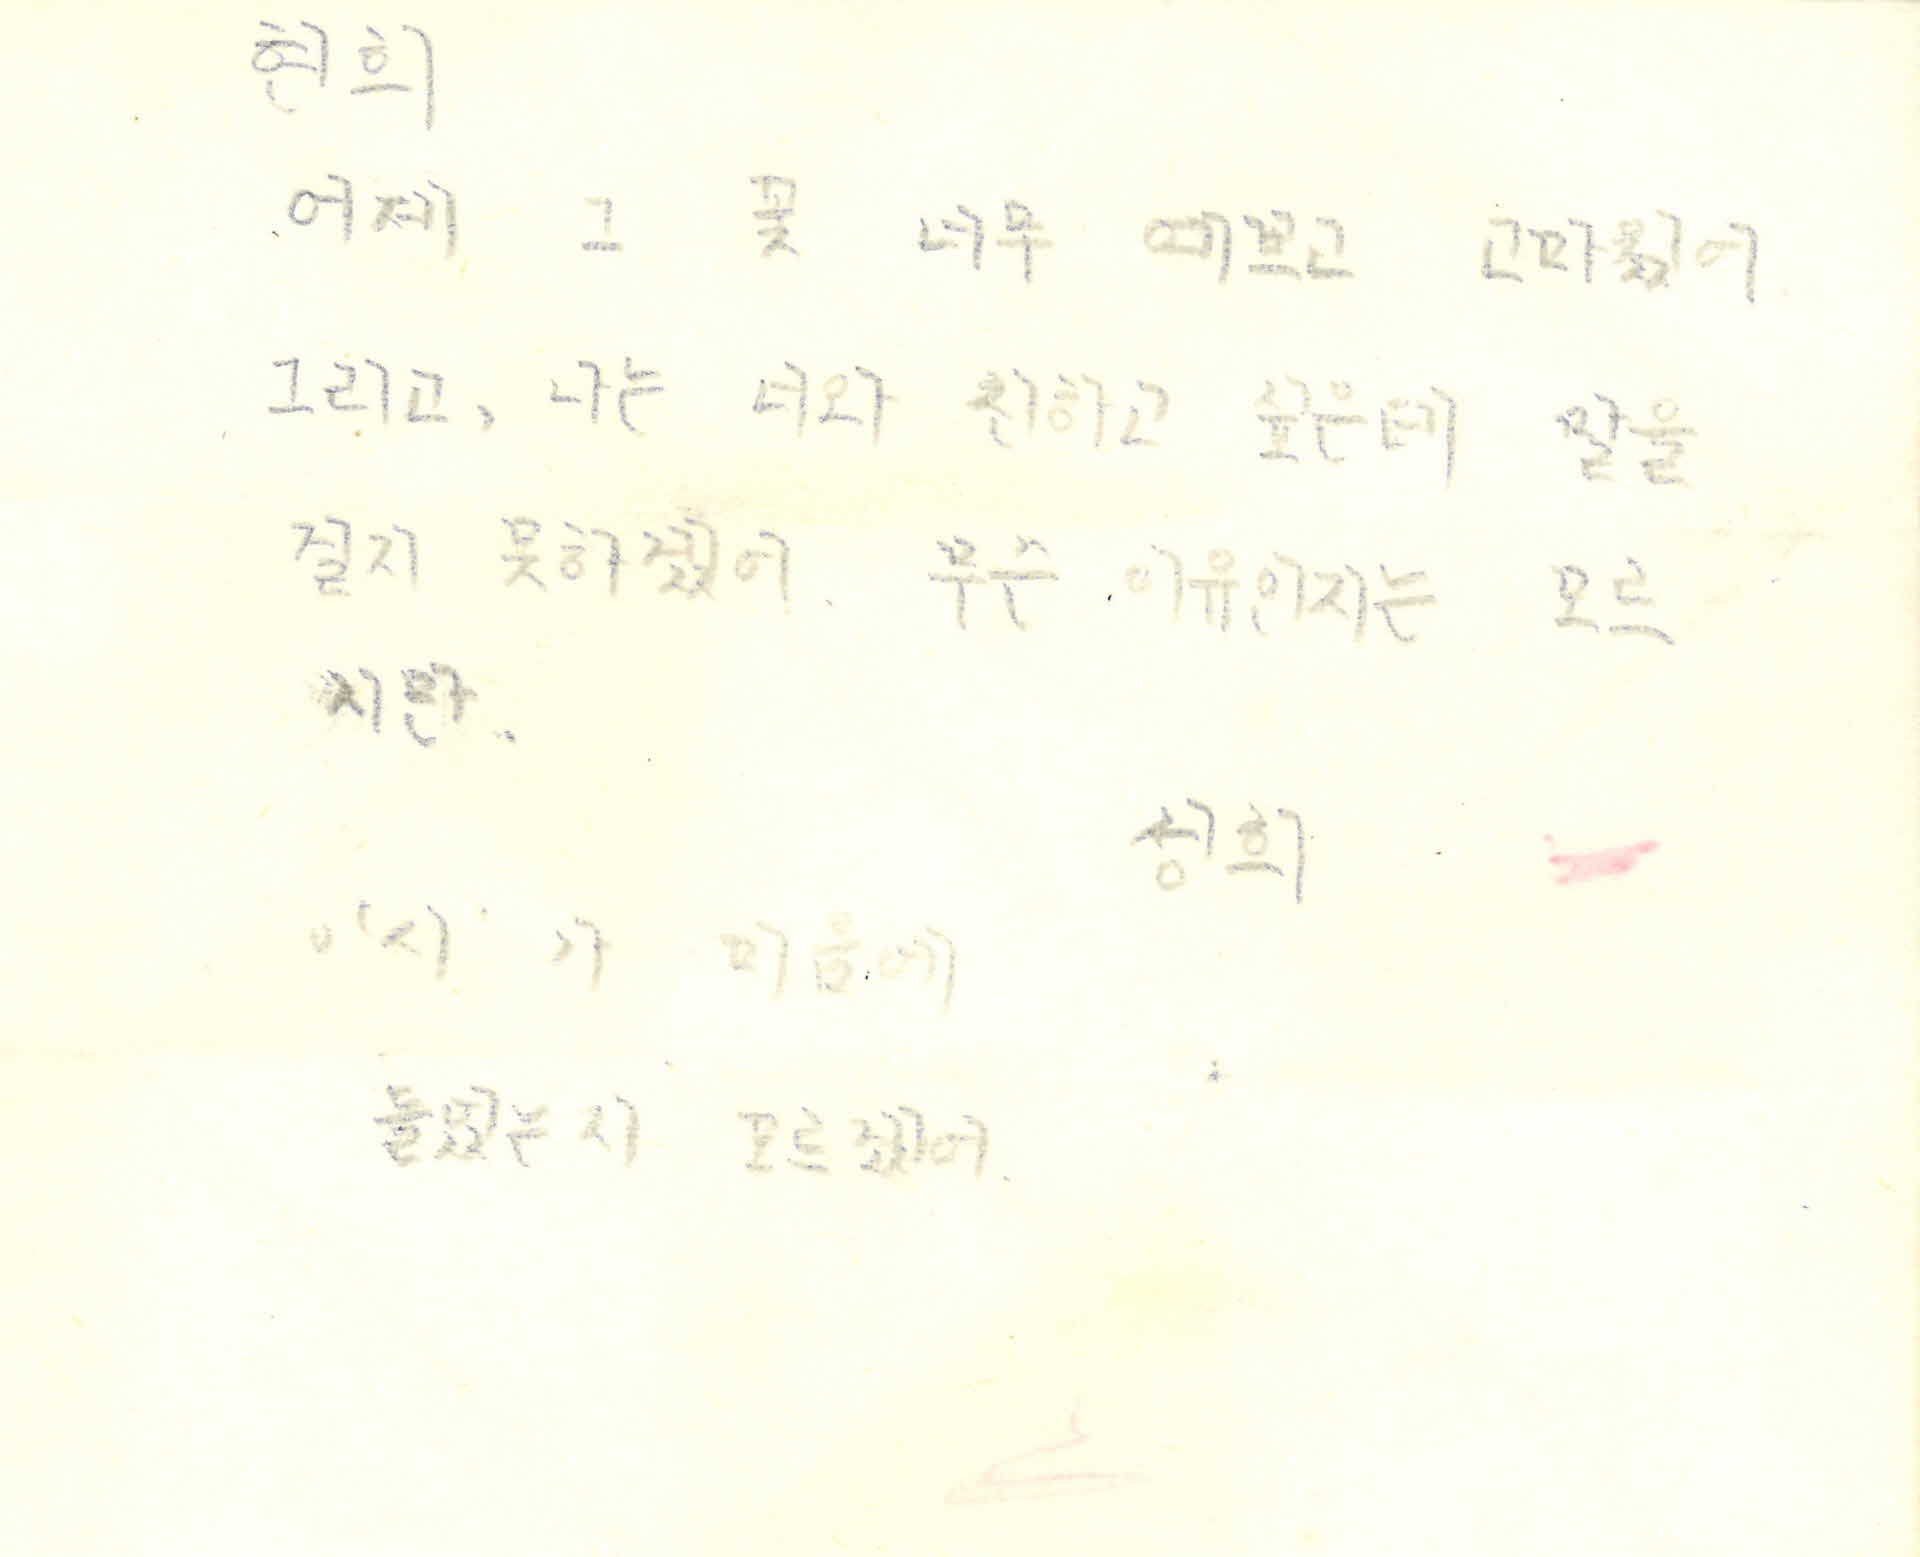 현희
어제 그 꽃 너무 예쁘고 고마웠어
그리고, 나는 너와 친하고 싶은데 말을
걸지 못하겠어. 무슨 이유인지는 모르
지만.
성희
이 '시' 가 마음에
들었는지 모르겠어.